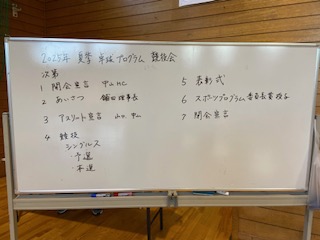 2025年 夏季 卓球プログラム 競技会
次第
1 開会宣言
2 あいさつ 理事長
3 アスリート宣言
4 競技
シングルス
・予選
・本選
5 表彰式
6 スポーツプログラム委員長
7 閉会宣言